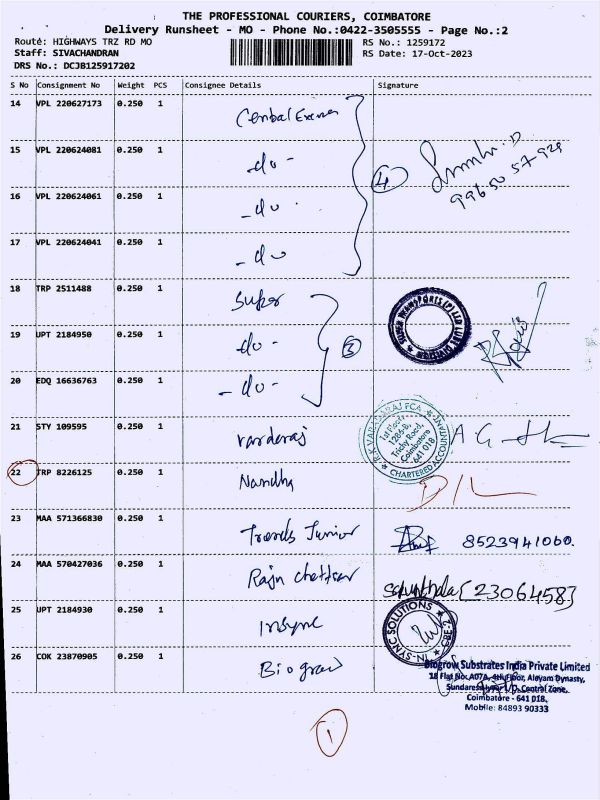 THE PROFESSIONAL COURIERS, COIMBATORE
Delivery Runsheet - MO - Phone No.:0422-3505555 - Page No.:2
Route: HIGHWAYS TRZ RD MO RS No.: 1259172
Staff: SIVACHANDRAN RS Date: 17-Oct-2023
DRS No.: DCJB125917202
S No Consignment No Weight PCS Consignee Details Signature
14 VPL 220627173 0.250 1 Central Excise
15 VPL 220624081 0.250 1 -do-
4
996 50 57 929
16 VPL 220624061 0.250 1 -do-
17 VPL 220624041 0.250 1 -do
18 TRP 2511488 0.250 1 Super
19 UPT 2184950 0.250 1 -do-
3
20 EDQ 16636763 0.250 1 -do-
21 STY 109595 0.250 1 Varderaj
R.K. VARADARAJ FCA
1st Floor,
1286-B,
Trichy Road,
Coimbatore
641 018
CHARTERED ACCOUNTANT
22 TRP 8226125 0.250 1 Nandha D/L
23 MAA 571366830 0.250 1 Trends Junior 8523941060.
24 MAA 570427036 0.250 1 Rajn chettiar Sakunthala [2306458]
25 UPT 2184930 0.250 1 Insync
IN-SYNC SOLUTIONS CBE-2
26 COK 23870905 0.250 1 Biogrow
Biogrow Substrates India Private Limited
18 Flat No. A07A, 4th Floor, Alayam Dynasty,
Central Zone,
Coimbatore - 641 018.
Mobile: 84893 90333
1